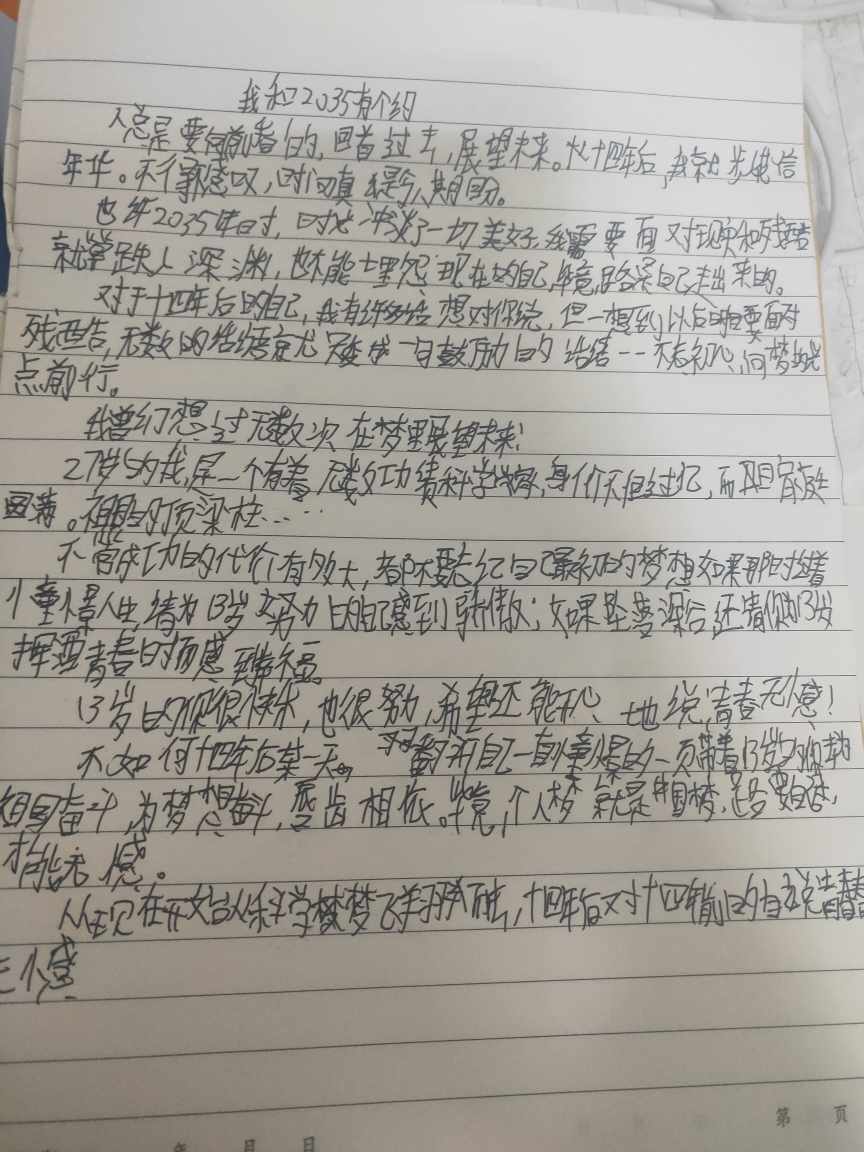 我和2035有个约
人总是要向前看的,回首过去,展望未来。十四年后,我就步
年华。不得感叹,时间真是令人期盼。
也许2035年时,时光冲淡了一切美好,我需要面对现实和残酷
就常跌入深渊,也不能埋怨现在的自己,毕竟路是自己走出来的。
对于十四年后的自己,我有许多话想对你说,但一想到以后要面对
残酷,无数的话语变成一句鼓励的话语--不忘初心,向梦
点前行。
我曾幻想过无数次在梦里展望未来!
27岁的我,是一个有着无数功绩科学,身价不但过亿,而且家庭
圆满。祖国的顶梁柱……
不管成功的代价有多大,都不要忘记自己最初的梦想如果那时
憧憬人生,请为13岁努力的自己感到骄傲;如果坠落深谷,还请你为13岁
挥洒青春的汗感到幸福。
13岁的你很快乐,也很努力,希望还能开心地说,青春无憾!
不如何十四年后某一天。翻开自己一直憧憬的一页带着13岁的你为
祖国奋斗,为梦想奋斗,唇齿相依。毕竟,个人梦就是中国梦,
才能无憾。
从现在开始从科学梦飞,十四年后对十四年前的自己说青春
无憾
第 页
年 月 日